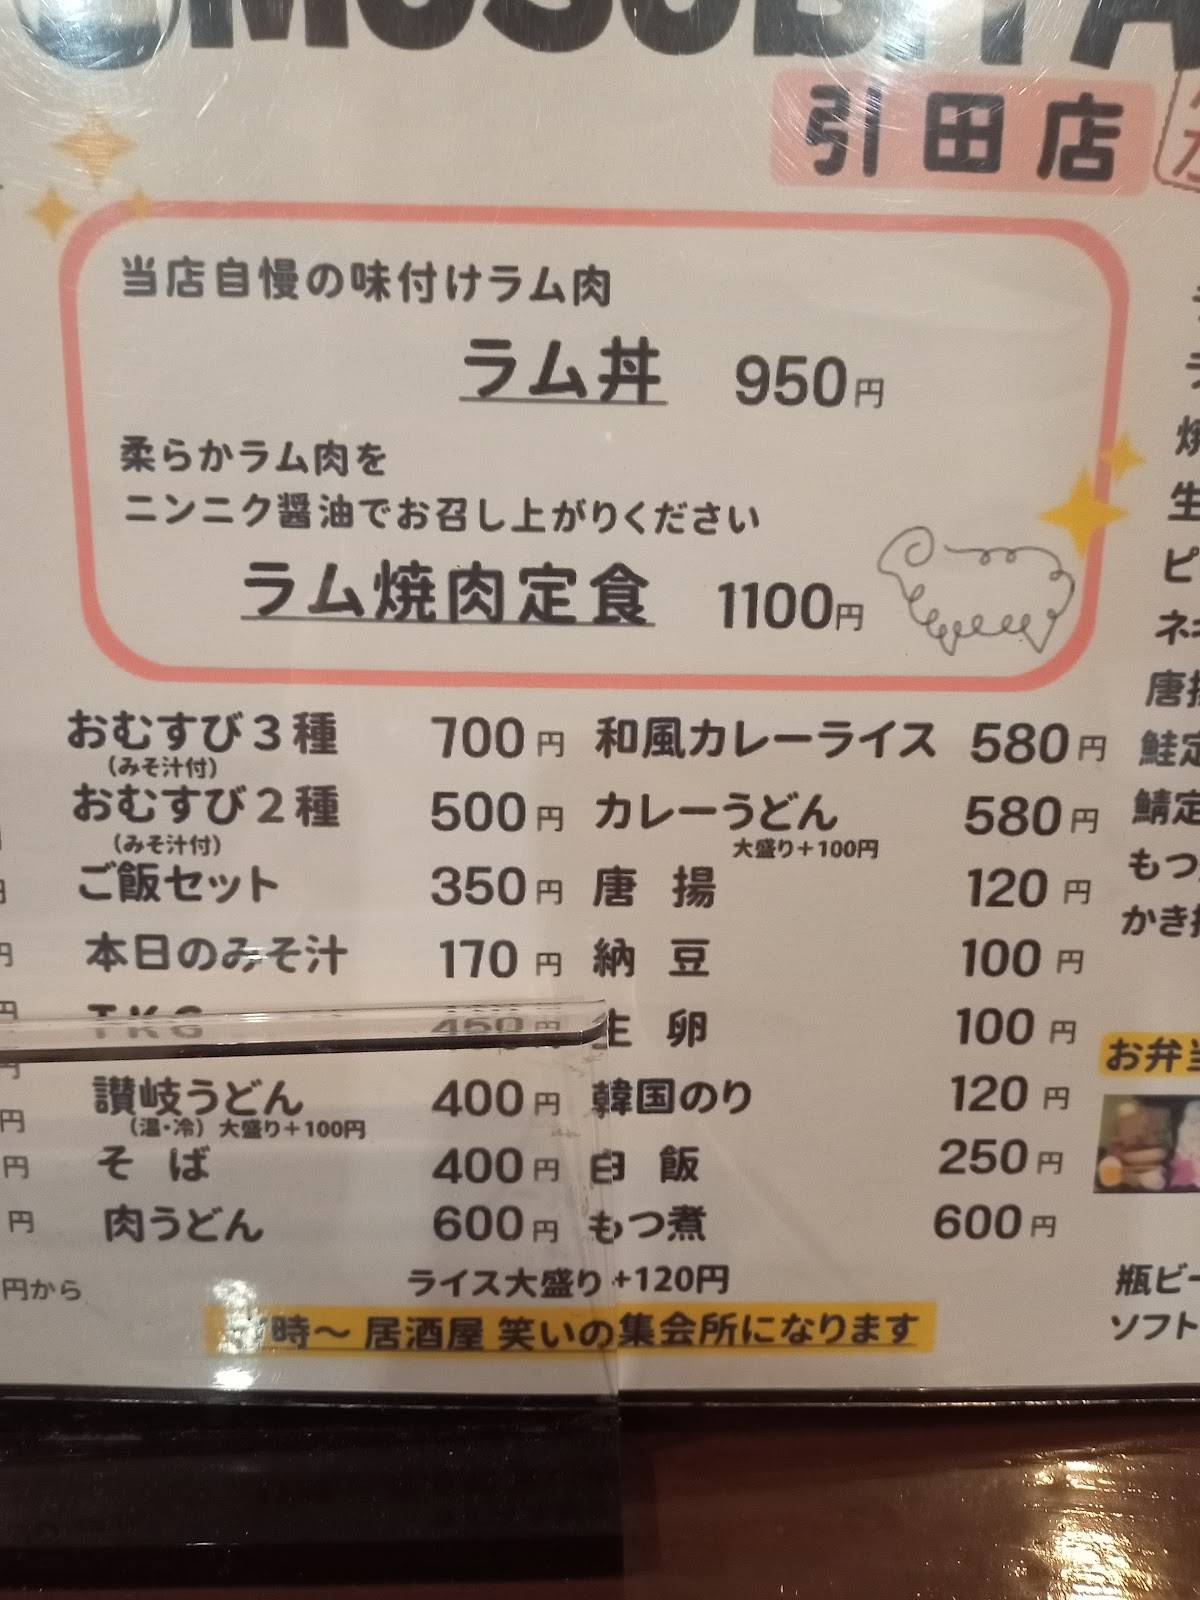 OMUSUBIYA
引田店
当店自慢の味付けラム肉
ラム丼 950円
柔らかラム肉を
ニンニク醤油でお召し上がりください
ラム焼肉定食 1100円
おむすび3種 700円
(みそ汁付)
おむすび2種 500円
(みそ汁付)
ご飯セット 350円
本日のみそ汁 170円
TKG 450円
讃岐うどん 400円
(温・冷) 大盛り+100円
そば 400円
肉うどん 600円
和風カレーライス 580円
カレーうどん 580円
大盛り+100円
唐揚 120円
納豆 100円
生卵 100円
韓国のり 120円
白飯 250円
もつ煮 600円
ライス大盛り+120円
時〜 居酒屋 笑いの集会所になります
円から
生
ピ
ネギ
唐揚
鮭定
鯖定
もつ
かき揚
お弁当
瓶ビー
ソフト